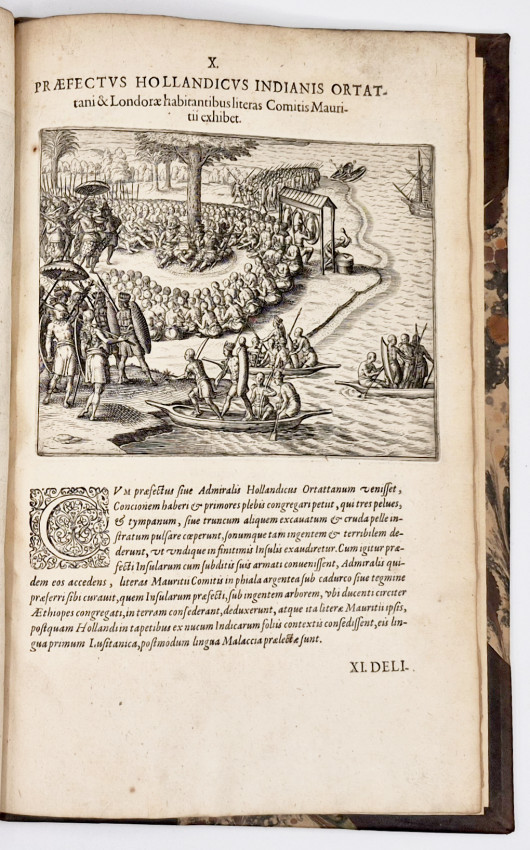 X.
PRÆFECTVS HOLLANDICVS INDIANIS ORTAT-
tani & Londoræ habitantibus literas Comitis Mauri-
tii exhibet.
CVM præfectus siue Admiralis Hollandicus Ortattanum venisset,
Concionem haberi & primores plebis congregari petiit, qui tres pelues,
& tympanum, siue truncum aliquem excauatum & cruda pelle in-
stratum pulsare cœperunt, sonumque tam ingentem & terribilem de-
derunt, vt vndique in finitimis Insulis exaudiretur. Cum igitur præ-
fecti Insularum cum subditis suis armati conuenissent, Admiralis qui-
dem eos accedens, literas Mauritii Comitis in phiala argentea sub cadurco siue tegmine
præferri sibi curauit, quem Insularum præfecti, sub ingentem arborem, vbi ducenti circiter
Æthiopes congregati, in terram consederant, deduxerunt, atque ita literæ Mauritii ipsis,
postquam Hollandi in tapetibus ex nucum Indicarum foliis contextis consedissent, eis lin-
gua primum Lusitanica, postmodum lingua Malaccia prælectæ sunt.
XI. DELI-